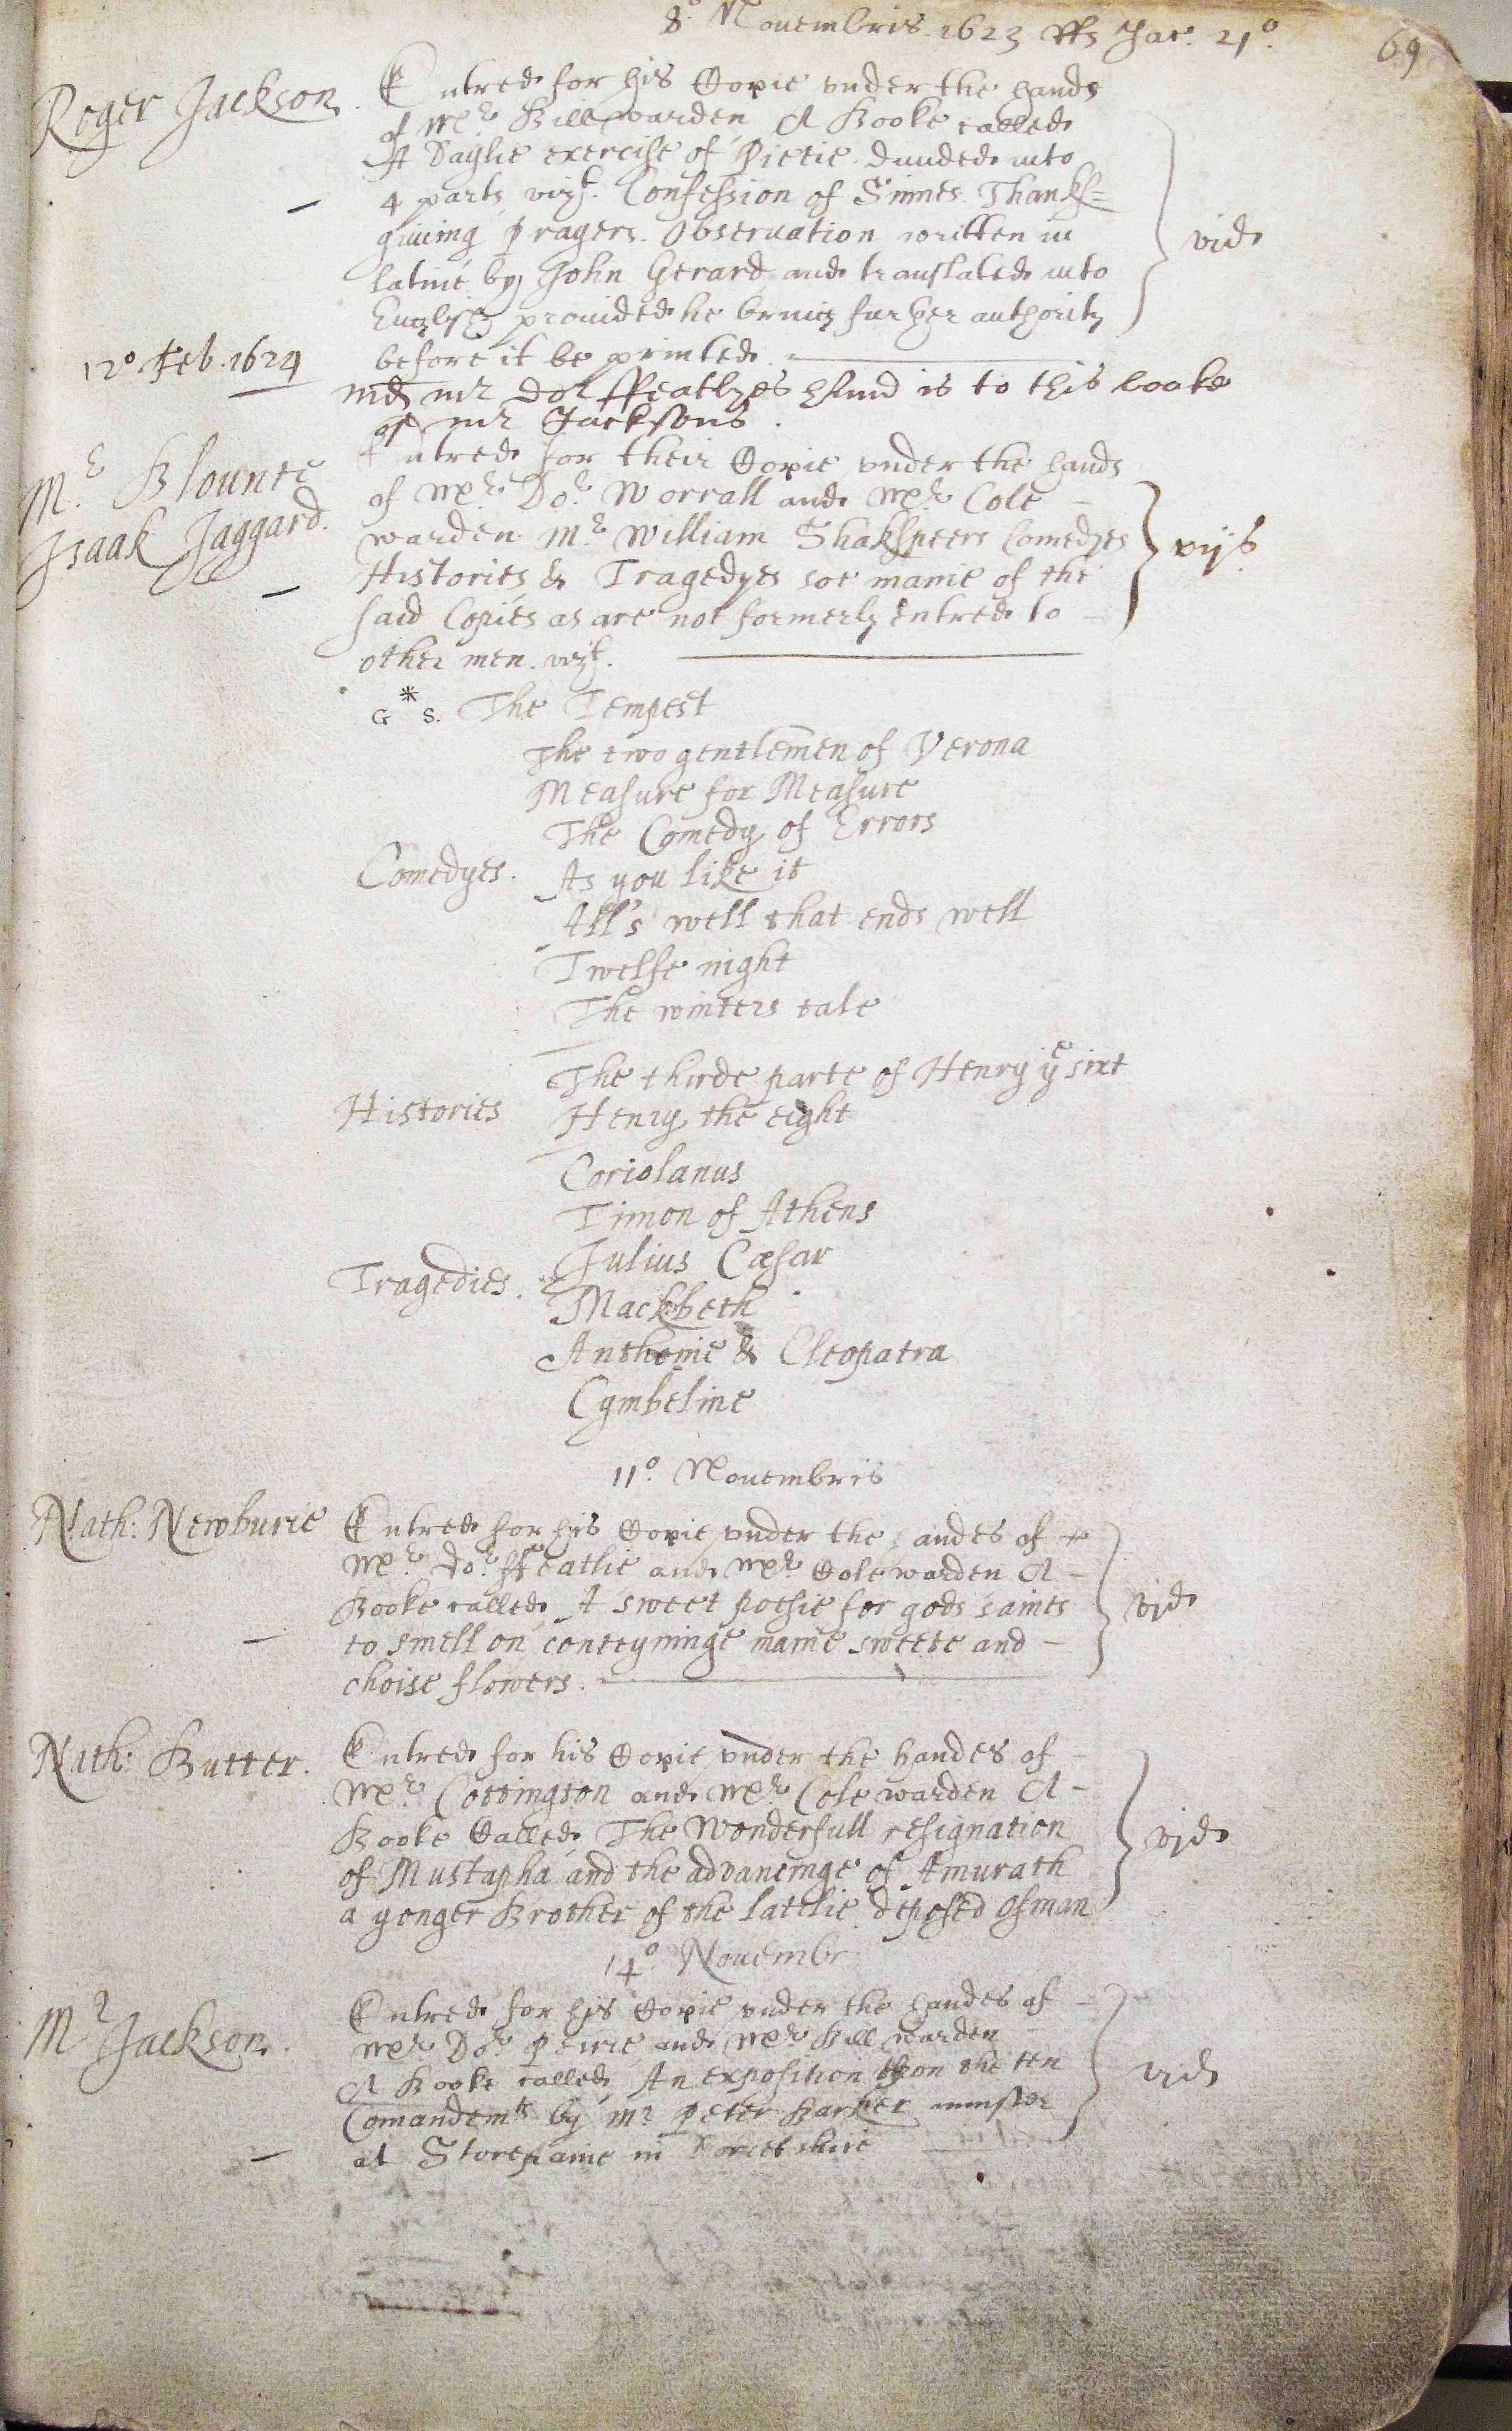 8o Nouembris. 1623 Rs Jac. 21o.
69
Roger Jackson.
Entred for his Copie vnder the hands
of Mr. Bill warden A Booke called
A Daylie exercise of Pietie diuided into
4 parts vizt. Confession of Sinnes. Thanks=
giuing Prayers. Obseruation written in
latine by John Gerard and translated into
English prouided he bring further authority
before it be printed.
vjd
12o Feb. 1624
md mr dor ffeatlyes hand is to this booke
of mr Jacksons.
Mr. Blounte
Isaak Jaggard.
Entred for their Copie vnder the hands
of Mr. Dor. Worrall and Mr. Cole
warden Mr. William Shakspeers Comedyes
Histories & Tragedyes soe manie of the
said Copies as are not formerly entred to
other men. vizt.
vijs
G * S. The Tempest
The two gentlemen of Verona
Measure for Measure
The Comedy of Errors
Comedyes. As you like it
All's well that ends well
Twelfe night
The winters tale
The thirde parte of Henry ye sixt
Histories Henry the eight
Coriolanus
Timon of Athens
Julius Cæsar
Tragedies.
Mackbeth
Anthonie & Cleopatra
Cymbeline
11o. Nouembris
Nath: Newburie
Entred for his Copie vnder the handes of
Mr. Dor. ffeatlie and Mr. Cole warden A
Booke called A sweet posie for gods saints
to smell on conteyninge manie sweete and
choise flowers.
vjd
Nath: Butter.
Entred for his Copie vnder the handes of
Mr. Cottington and Mr. Cole warden A
Booke Called The Wonderfull resignation
of Mustapha and the advancinge of Amurath
a yonger Brother of the lattlie deposed Osman
vjd
14o. Nouembr
Mr Jackson.
Entred for his Copie vnder the handes of
Mr. Dor. Pewie and Mr. Bill warden
A Booke called An exposition vpon the ten
Comandemts by mr Peter Barker minister
at Storepaine in Dorcetshire
vjd